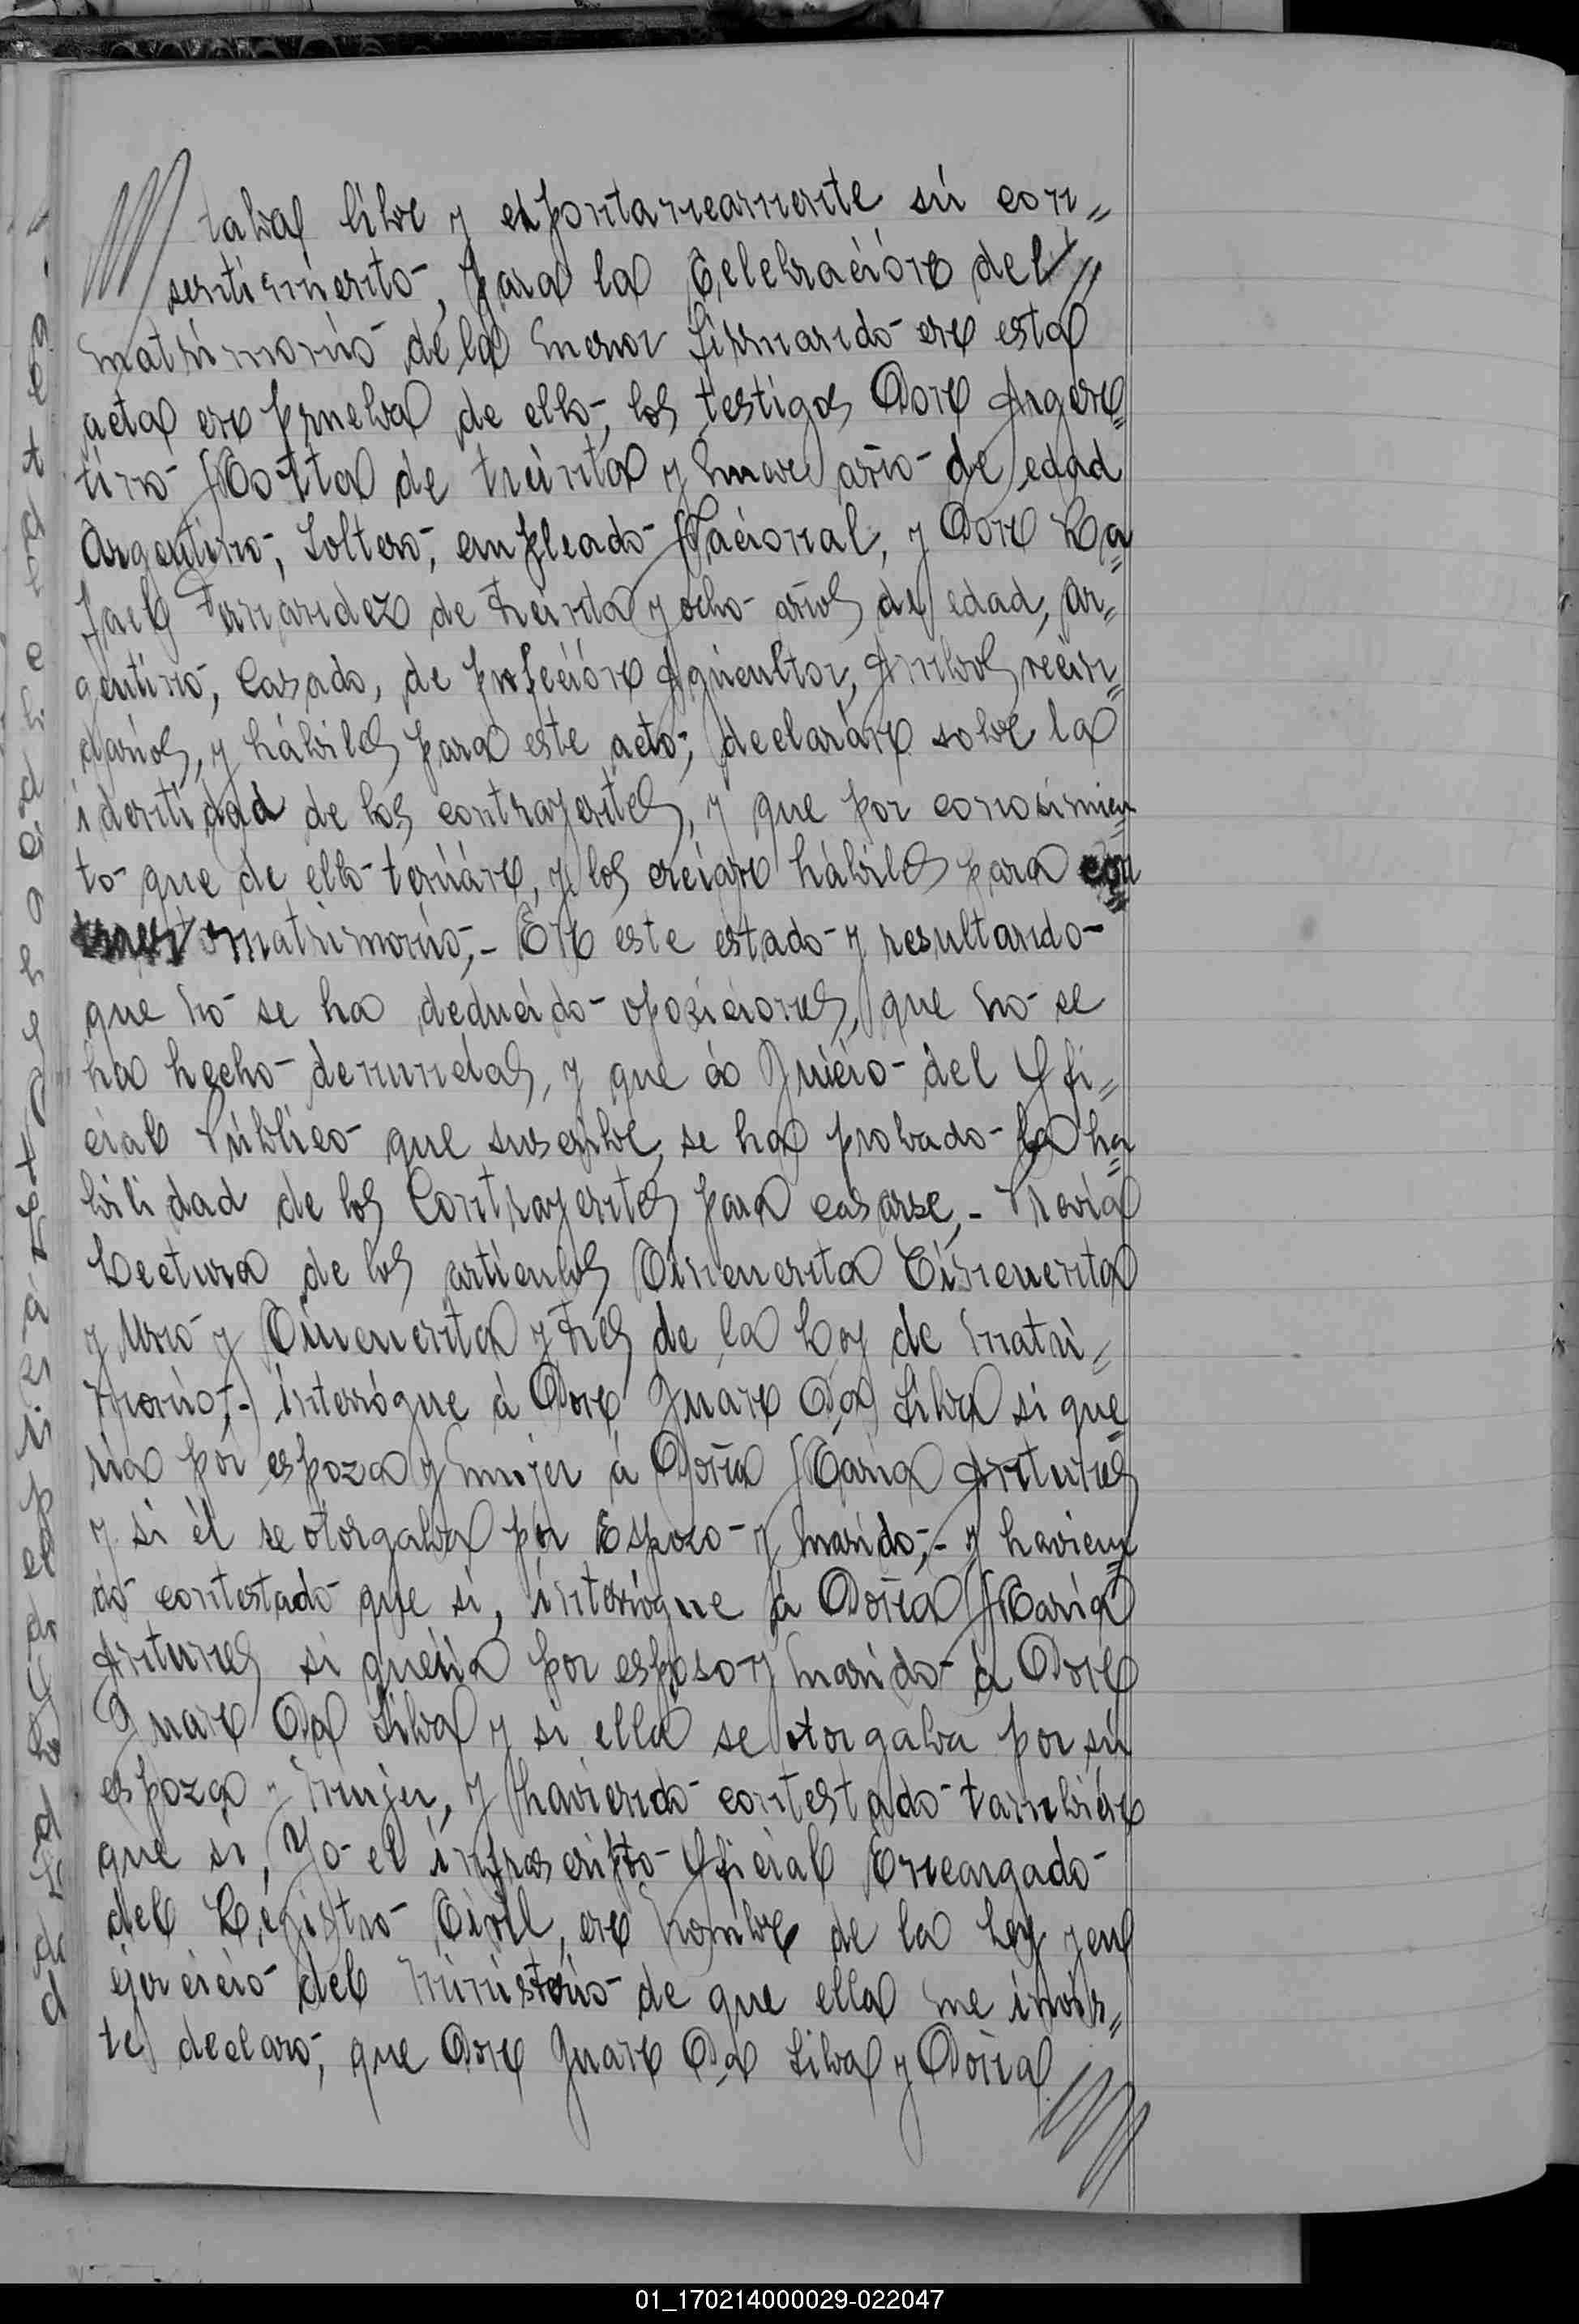 tabal libre y espontaneamente sú con„
sentimiento, para la Celebración del
matrimonio de la menor firmando en esta
acta en prueba de ello, los testigos Don Argen„
tino Motta de treinta y nueve año de edad
Argentino, Soltero, empleado Nacional, y Don Ra„
fael Fernandez de treinta y ocho años de edad, ar„
gentino, Casado, de profeción Agricultor, Ambos vecin„
darios, y hábiles para este acto; declarárn sobre la
identidad de los contrayentes, y que por conosimien„
to que de ello teniárn, y los creiarn hábiles para con„
traer matrimonio,- En este estado y resultando
que no se ha deducido opoziciones, que no se
ha hecho denuncias, y que á Juicio del Ofi„
cial Público que suscribe, se ha probado la ha„
bilidad de los Contrayentes para casarse,- Previa
Lectura de los articulos Cincuenta Cincuenta
y Uno y Cincuenta y tres de la Ley de matri„
monio,- interrógue á Don Juan Da Silva si que„
ria por espoza y mujer á Doña Maria Antunes
y si él se otorgaba por Espozo y marido,- y havien„
do contestado que si, interrógue á Doña Maria
Antunes si queria por esposo y marido á Don
Juan Da Silva y si ella se otorgaba por sú
espoza y mujer, y haviendo contestado tambien
que si, Yo el infrascripto Oficial Encargado
del Registro Civil, en nombre de la Ley y en
ejercicio del ministerio de que ella me invis„
te declaro, que Don Juan Da Silva y Doña
01_170214000029-022047